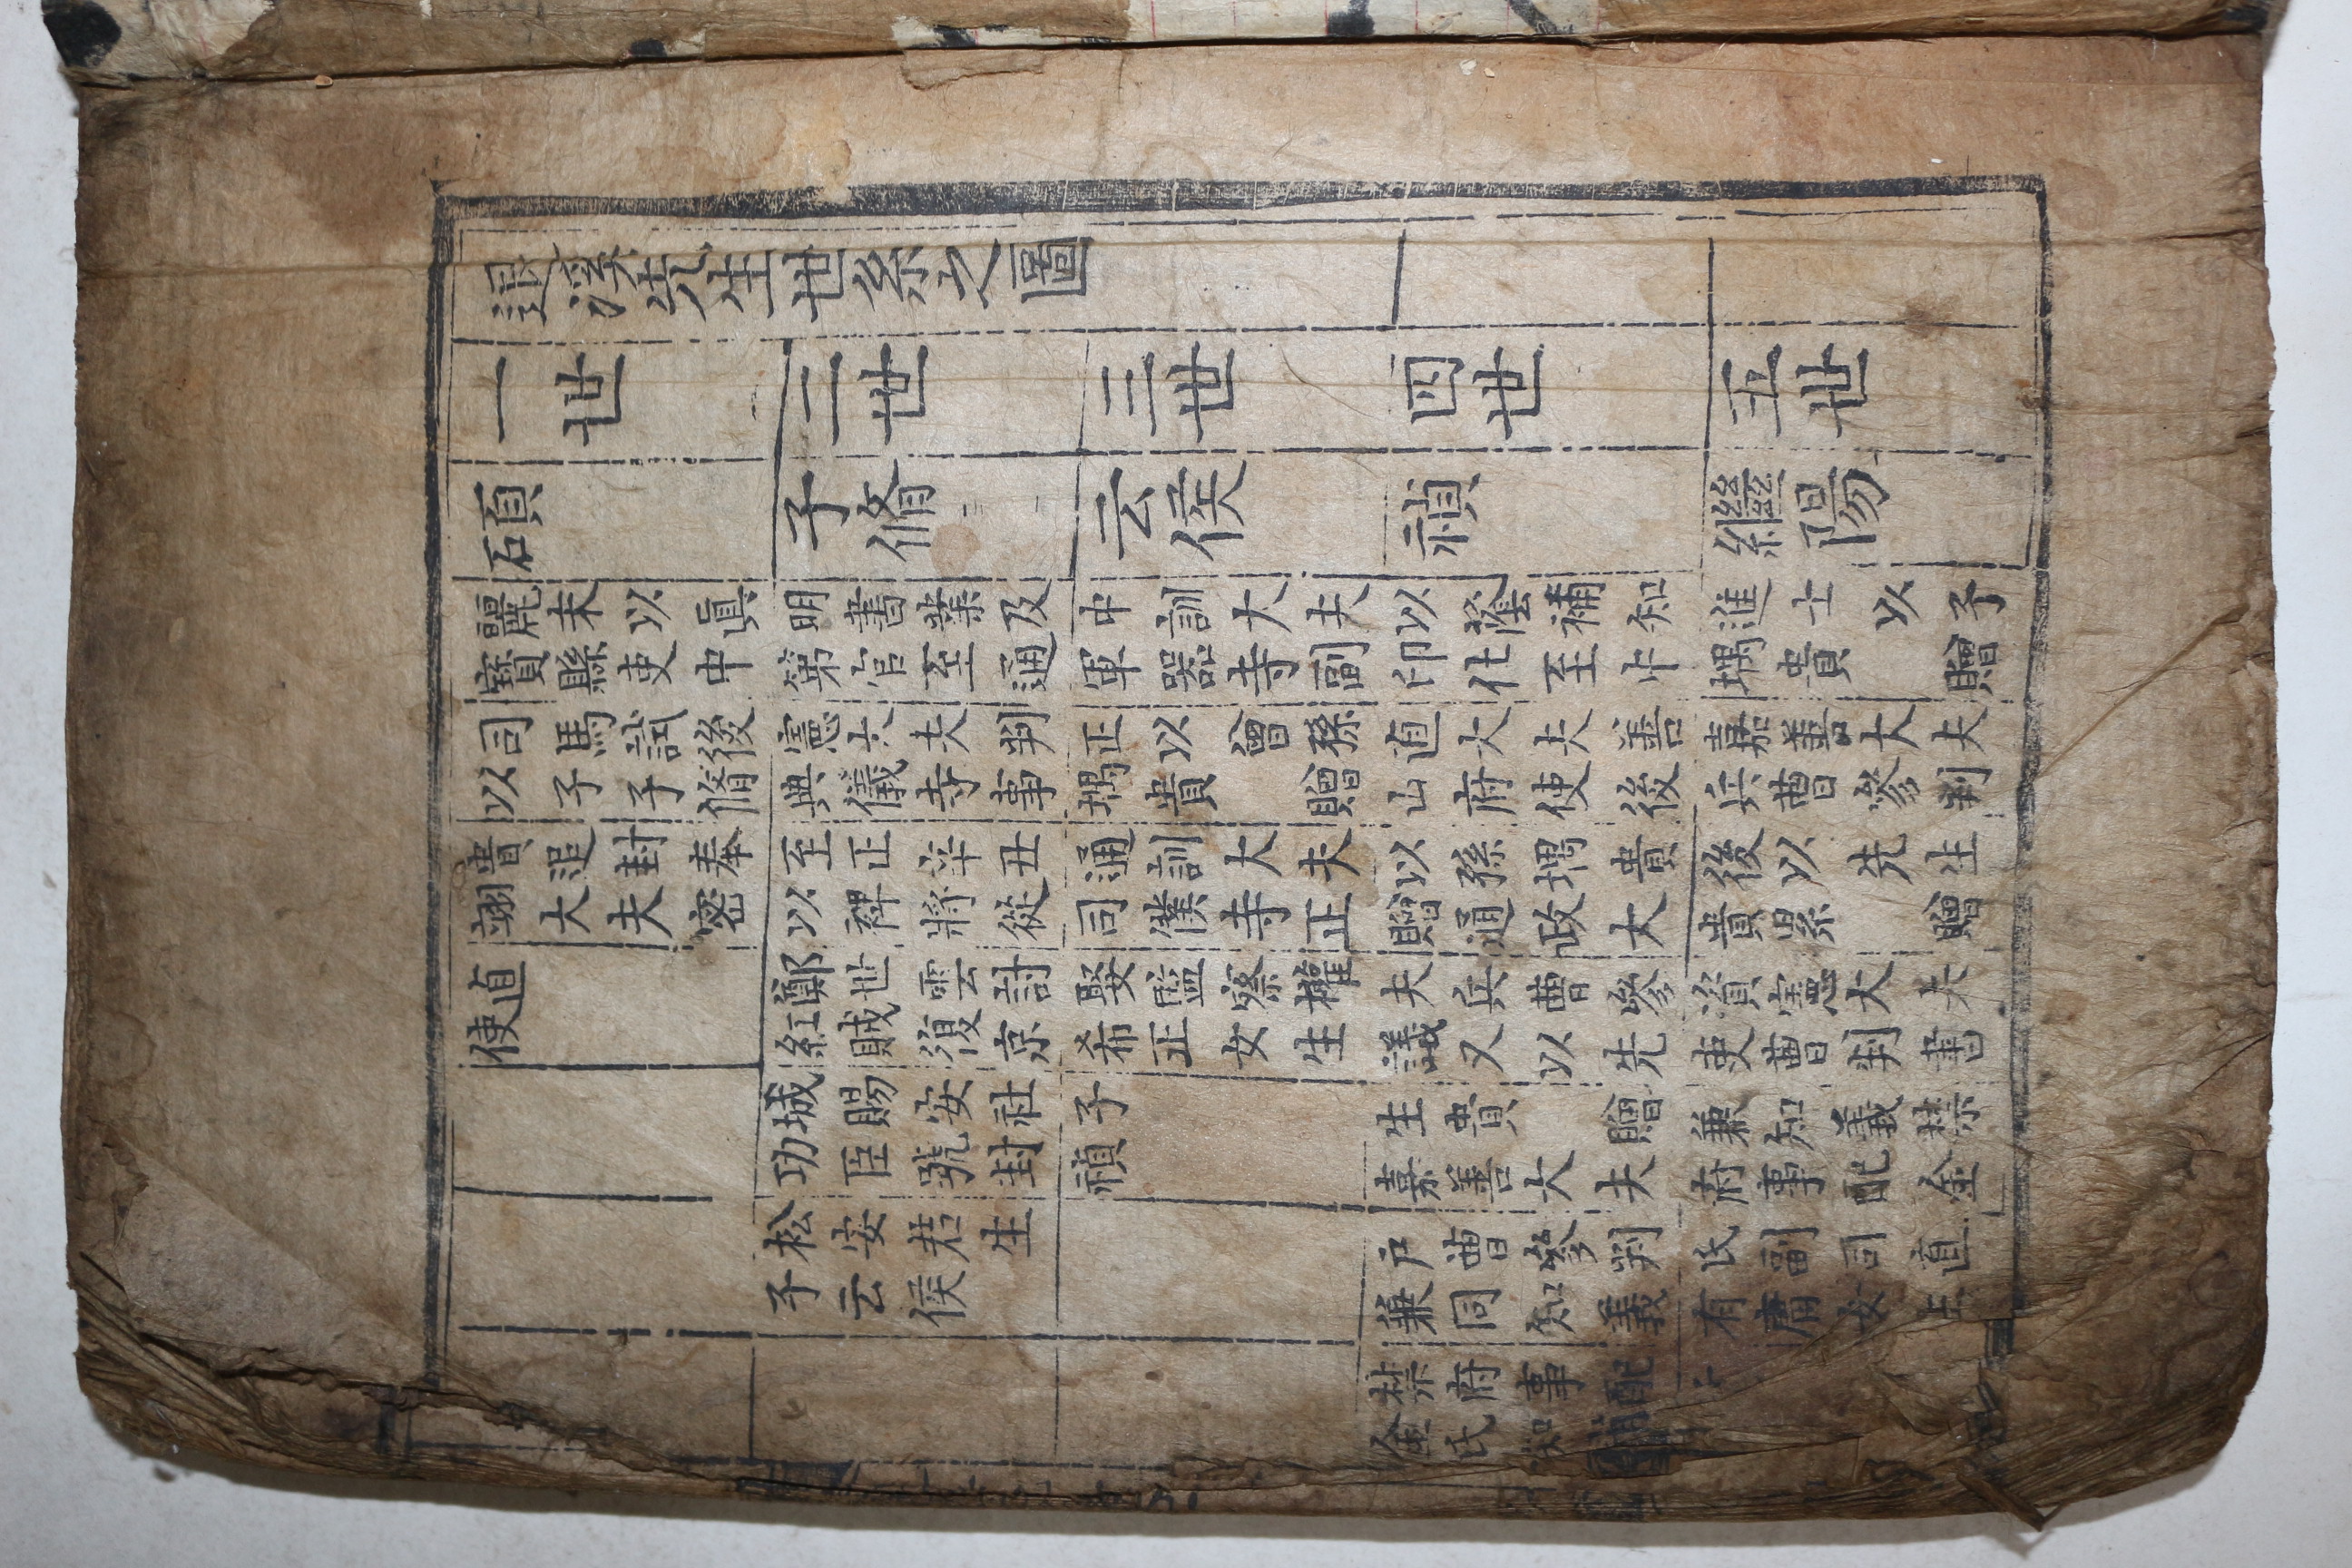 退溪先生世系之圖
一世
二世
三世
四世
五世
碩
麗末以眞
寶縣吏中
司馬試後
以子子脩
貴追封奉
翊大夫密
直
使
子脩
明書業及
第官至通
憲大夫判
典儀寺事
至正辛丑
以裨將從
鄭世雲討
紅賊復京
城賜安社
功臣號封
松安君生
子云侯
云侯
中訓大夫
軍器寺副
正以曾孫
堣貴 贈
通訓大夫
司僕寺正
娶監察權
希正女生
子
禎
禎
以蔭補知
印仕至中
直大夫善
山府使後
以孫堣貴
贈通政大
夫兵曹參
議又以先
生貴 贈
嘉善大夫
戶曹參判
兼同知義
禁府事配
金氏知
繼陽
進士以子
堣貴 贈
嘉善大夫
兵曹參判
後以先生
貴累 贈
資憲大夫
吏曹判書
兼知義禁
府事配金
氏副司直
有庸女生